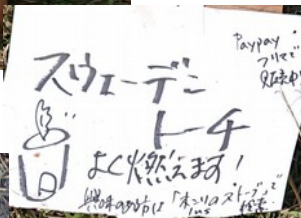 Paypay
フリマで
販売中!
スウェーデン
トーチ
よく燃えます!
興味の方は「オンリのストーブ」で
検索